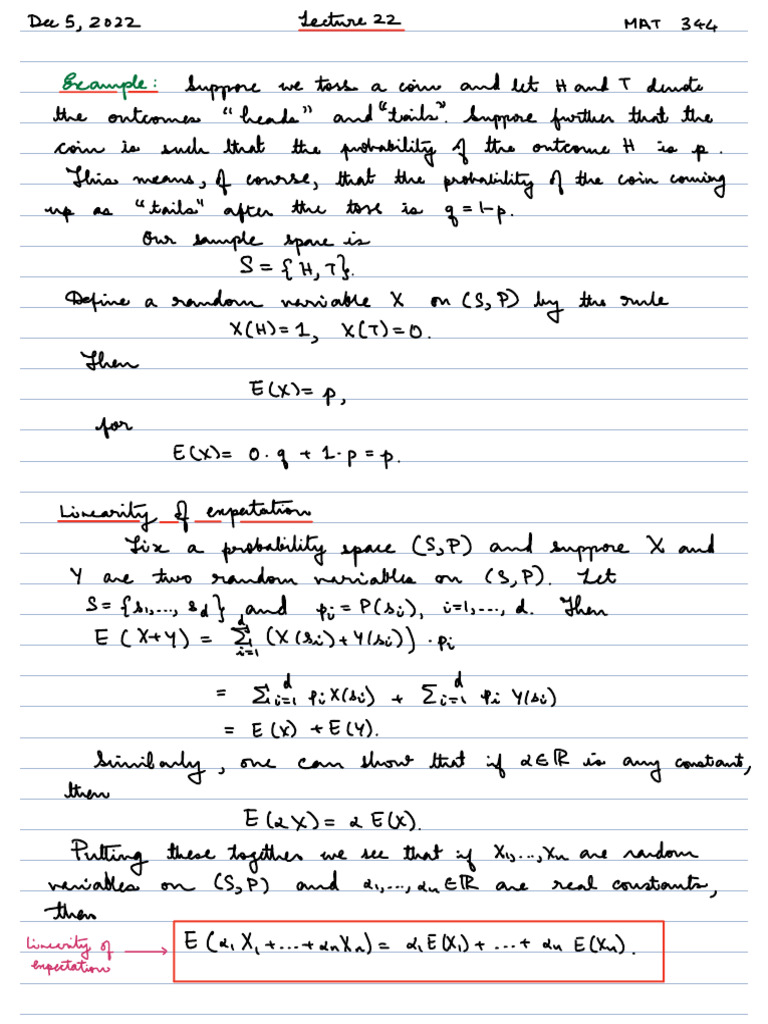 Dec 5, 2022 Lecture 22 MAT 344
Example: Suppose we toss a coin and let H and T denote
the outcomes "heads" and "tails". Suppose further that the
coin is such that the probability of the outcome H is p.
This means, of course, that the probability of the coin coming
up as "tails" after the toss is q = 1-p.
Our sample space is
S = {H, T}.
Define a random variable X on (S, P) by the rule
X(H) = 1, X(T) = 0.
Then
E(X) = p,
for
E(X) = 0·q + 1·p = p.
Linearity of expectation
Fix a probability space (S, P) and suppose X and
Y are two random variables on (S, P). Let
S = {s₁, ..., s_d}, and pᵢ = P(sᵢ), i=1, ..., d. Then
E(X+Y) = Σ_{i=1}^{d} (X(sᵢ) + Y(sᵢ)) · pᵢ
= Σ_{i=1}^{d} pᵢ X(sᵢ) + Σ_{i=1}^{d} pᵢ Y(sᵢ)
= E(X) + E(Y).
Similarly, one can show that if α ∈ ℝ is any constant,
then
E(αX) = α E(X).
Putting these together we see that if X₁, ..., Xₙ are random
variables on (S, P) and α₁, ..., αₙ ∈ ℝ are real constants,
then
Linearity of expectation → E(α₁X₁ + ... + αₙXₙ) = α₁E(X₁) + ... + αₙ E(Xₙ).